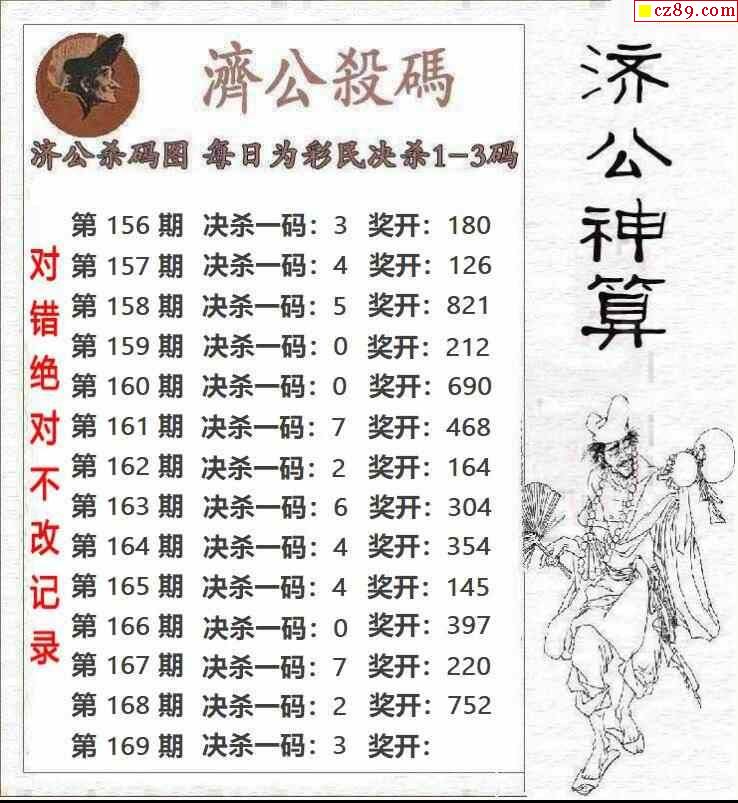 cz89.com
濟公殺碼
济公杀码图 每日为彩民决杀1-3码
第 156 期 决杀一码：3 奖开：180
第 157 期 决杀一码：4 奖开：126
第 158 期 决杀一码：5 奖开：821
第 159 期 决杀一码：0 奖开：212
第 160 期 决杀一码：0 奖开：690
第 161 期 决杀一码：7 奖开：468
第 162 期 决杀一码：2 奖开：164
第 163 期 决杀一码：6 奖开：304
第 164 期 决杀一码：4 奖开：354
第 165 期 决杀一码：4 奖开：145
第 166 期 决杀一码：0 奖开：397
第 167 期 决杀一码：7 奖开：220
第 168 期 决杀一码：2 奖开：752
第 169 期 决杀一码：3 奖开：
对错绝对不改记录
济公神算